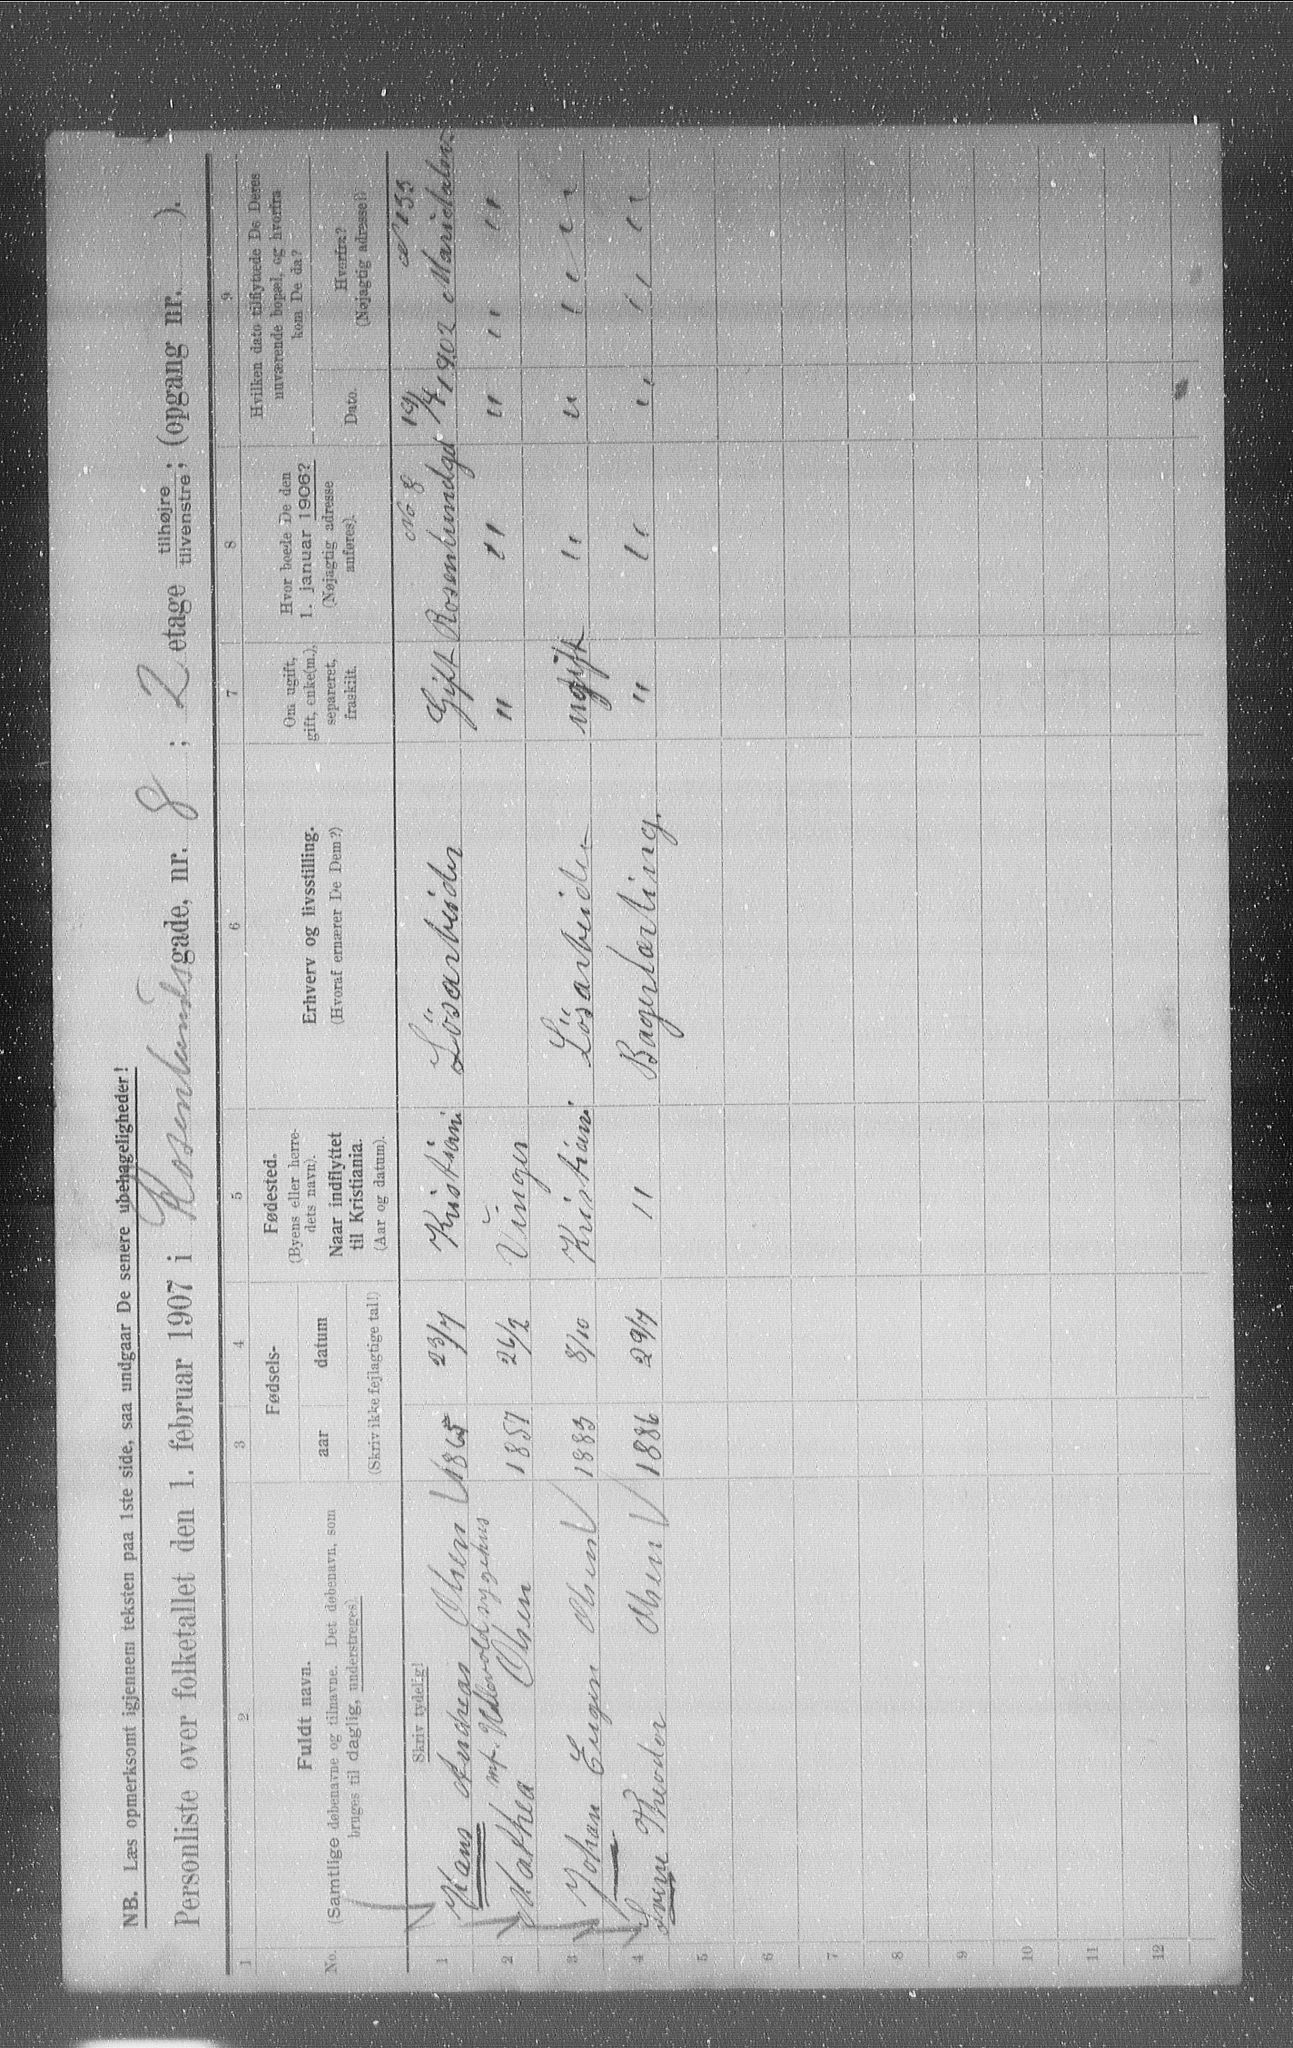 NB. Læs opmerksomt igjennem teksten paa 1ste side, saa undgaar De senere ubehageligheder!
Personliste over folketallet den 1. februar 1907 i Rosenlundsgade, nr. 8; 2 etage tilhøjre / tilvenstre; (opgang nr. ).
1 2 3 4 5 6 7 8 9
No.
Fuldt navn.
(Samtlige døbenavne og tilnavne. Det døbenavn, som
bruges til daglig, understreges).
Fødsels-
aar datum
(Skriv ikke fejlagtige tal!)
Fødested.
(Byens eller herre-
dets navn).
Naar indflyttet
til Kristiania.
(Aar og datum).
Erhverv og livsstilling.
(Hvoraf ernærer De Dem?)
Om ugift,
gift, enke(m.),
separeret,
fraskilt.
Hvor boede De den
1. januar 1906?
(Nøjagtig adresse
anføres).
Hvilken dato tilflyttede De Deres
nuværende bopæl, og hvorfra
kom De da?
Dato.
Hvorfra?
(Nøjagtig adresse).
Skriv tydelig!
No 8 19/4 133
1 Hans Andreas Olsen 1865 23/7 Kristiani Lösarbeider Gift Rosenlundgd 1902 Maridalen
mf. Ullevold sygehus
2 Mathea Olsen 1857 26/2 Vinger " " " " "
3 Johan Eugen Olsen 1883 8/10 Kristiani Lösarbeider ugift " " " "
4 Theodor Olsen 1886 29/7 " Bagerlærling. " " " " "
5
6
7
8
9
10
11
12